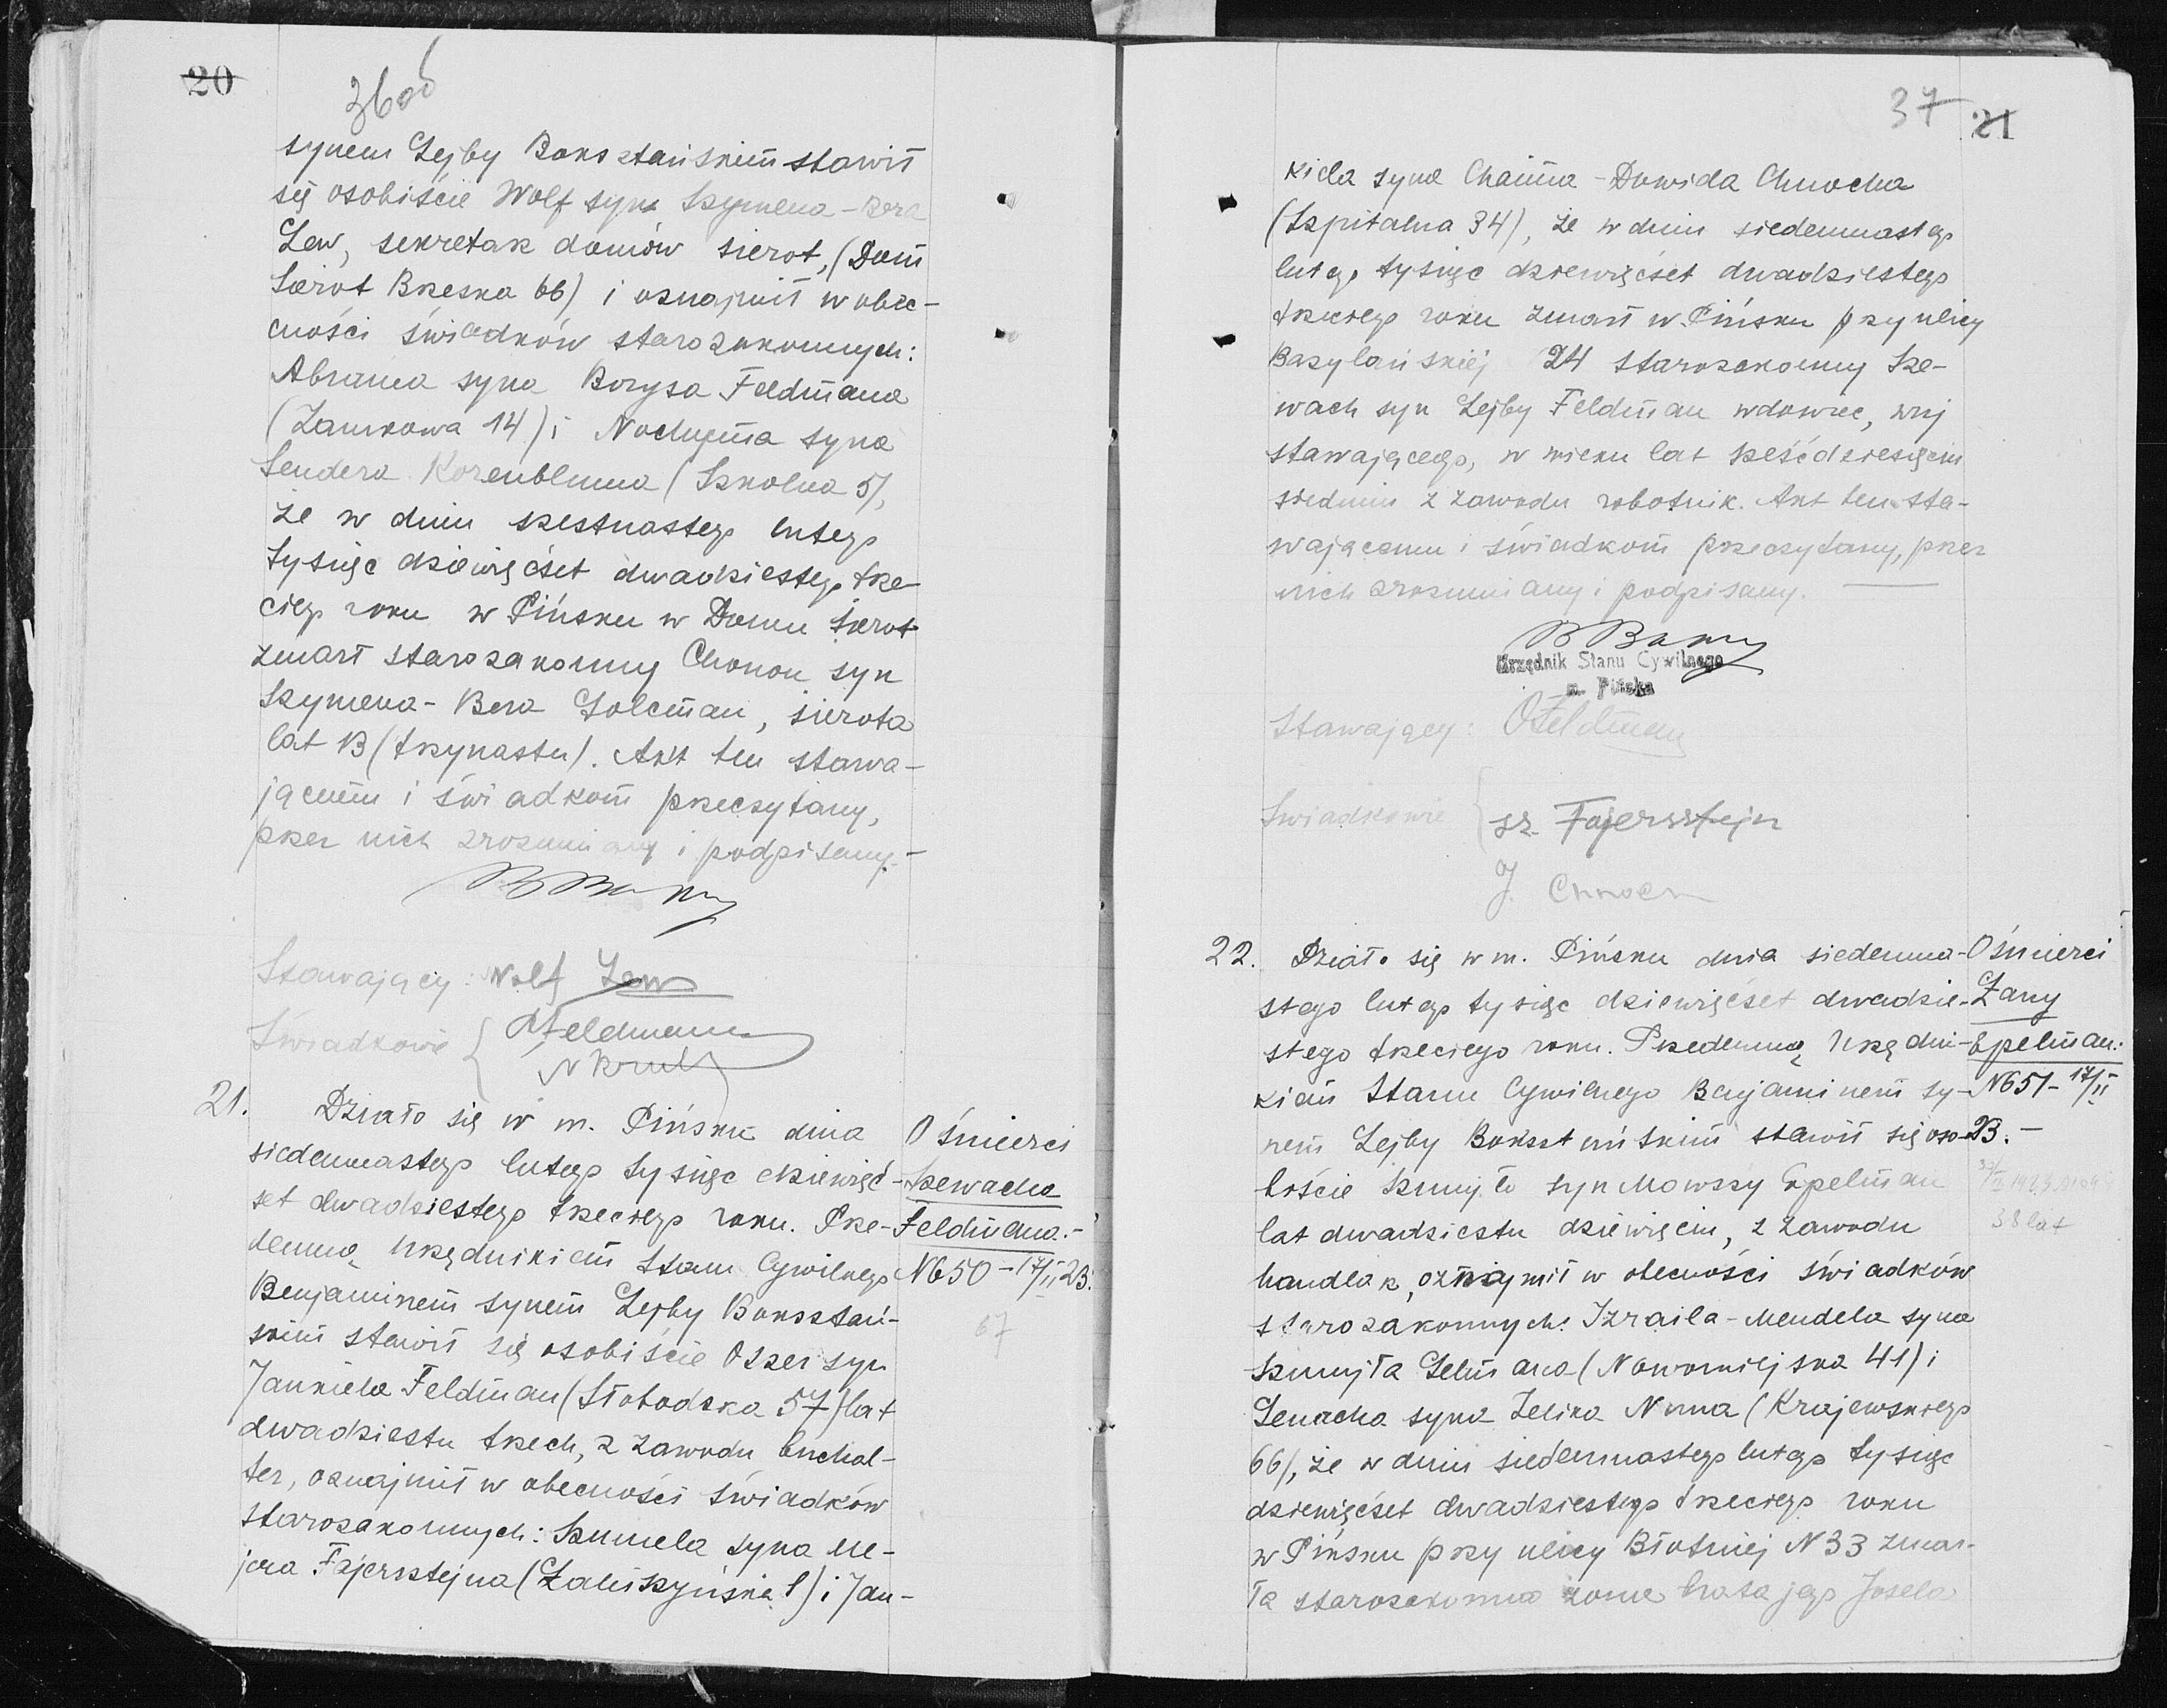 20
36 об
synem Lejby Boksztańskim stawił
się osobiście Wolf syn Szymena - Bera
Lew, sekretaż domów sierot, (Dom
Sierot Bżeska 66) i oznajmił w obec-
ności świadków starozakonnych:
Abrama syna Borysa Feldmana
(Zamkowa 14) i Nochyma syna
Sendera Korenbluma (Szkolna 5),
że w dniu szesnastego lutego
tysiąc dziewięćset dwadziestego tże-
ciego roku w Pińsku w Domu Sierot
zmarł starozakonny Chonon syn
Szymena - Bera Golcman, sierota
lat 13 (tżynastu). Akt ten stawa-
jącemu i świadkom pżeczytany,
pżez nich zrozumiany i podpisany. -
Stawający: Wolf Lew
Świadkowie { AFeldman
21.
Działo się w m. Pińsku dnia
siedemnastego lutego tysiąc dziewięć-
set dwadziestego tżeciego roku. Pże-
demną Użędnikiem Stanu Cywilnego
Benjaminem synem Lejby Boksztań-
skim stawił się osobiście Oszer syn
Jankiela Feldman (Słobodska 57) lat
dwadziestu tżech, z zawodu buchal-
ter, oznajmił w obecności świadków
starozakonnych: Szmuela syna Me-
jera Fajersztejna (Zaliszyńska 1) i Jan-
O śmierci
Szewacha
Feldmana. -
N650 - 17/II 23.
67
37
21
kiela syna Chaima - Dawida Chnocha
(Szpitalna 34), że w dniu siedemnastego
lutego tysiąc dziewięćset dwadziestego
tżeciego roku zmarł w Pińsku pży ulicy
Bazyliańskiej 24 starozakonny Sze-
wach syn Lejby Feldman wdowiec, wuj
stawającego, w wieku lat sześćdziesięciu
siedmiu z zawodu robotnik. Akt ten sta-
wającemu i świadkom pżeczytany, pżez
nich zrozumiany i podpisany.
Urzędnik Stanu Cywilnego
m. Pińska
Stawający: OFeldman
Świadkowie { Sz. Fajersztejn
J. Chnoch
22.
Działo się w m. Pińsku dnia siedemna-
stego lutego tysiąc dziewięćset dwadzie-
stego tżeciego roku. Pżedemną Użędni-
kiem Stanu Cywilnego Benjaminem sy-
nem Lejby Boksztańskim stawił się oso-
biście Szmujło syn Mowszy Epelman
lat dwadziestu dziewięciu, z zawodu
handlaż, oznajmił w obecności świadków
starozakonnych: Izraila - Mendela syna
Szmujła Gelmana (Nowomiejska 41) i
Genacha syna Zelika Numa (Krajewskiego
66), że w dniu siedemnastego lutego tysiąc
dziewięćset dwadziestego tżeciego roku
w Pińsku pży ulicy Błotniej N33 zmar-
ła starozakonna żona brata jego Josela
O śmierci
Żany
Epelman.
N651 - 17/II
23. -
38 lat